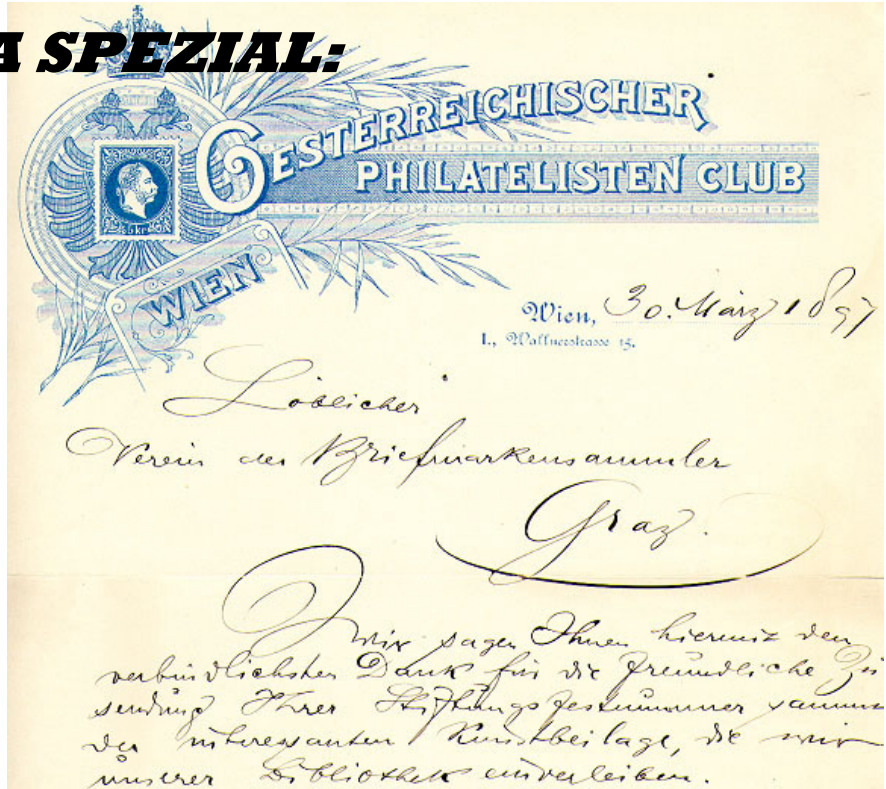 A SPEZIAL:
OESTERREICHISCHER
PHILATELISTEN CLUB
5 kr
WIEN
Wien, 30. März 1897
I., Wallnerstrasse 15.
Löblicher
Verein der Briefmarkensammler
Graz.
Wir sagen Ihnen hiermit den
verbindlichsten Dank für die freundliche Zu
sendung Ihrer Stiftungsfestnummer sammt
der interessanten Kunstbeilage, die wir
unserer Bibliothek einverleiben.